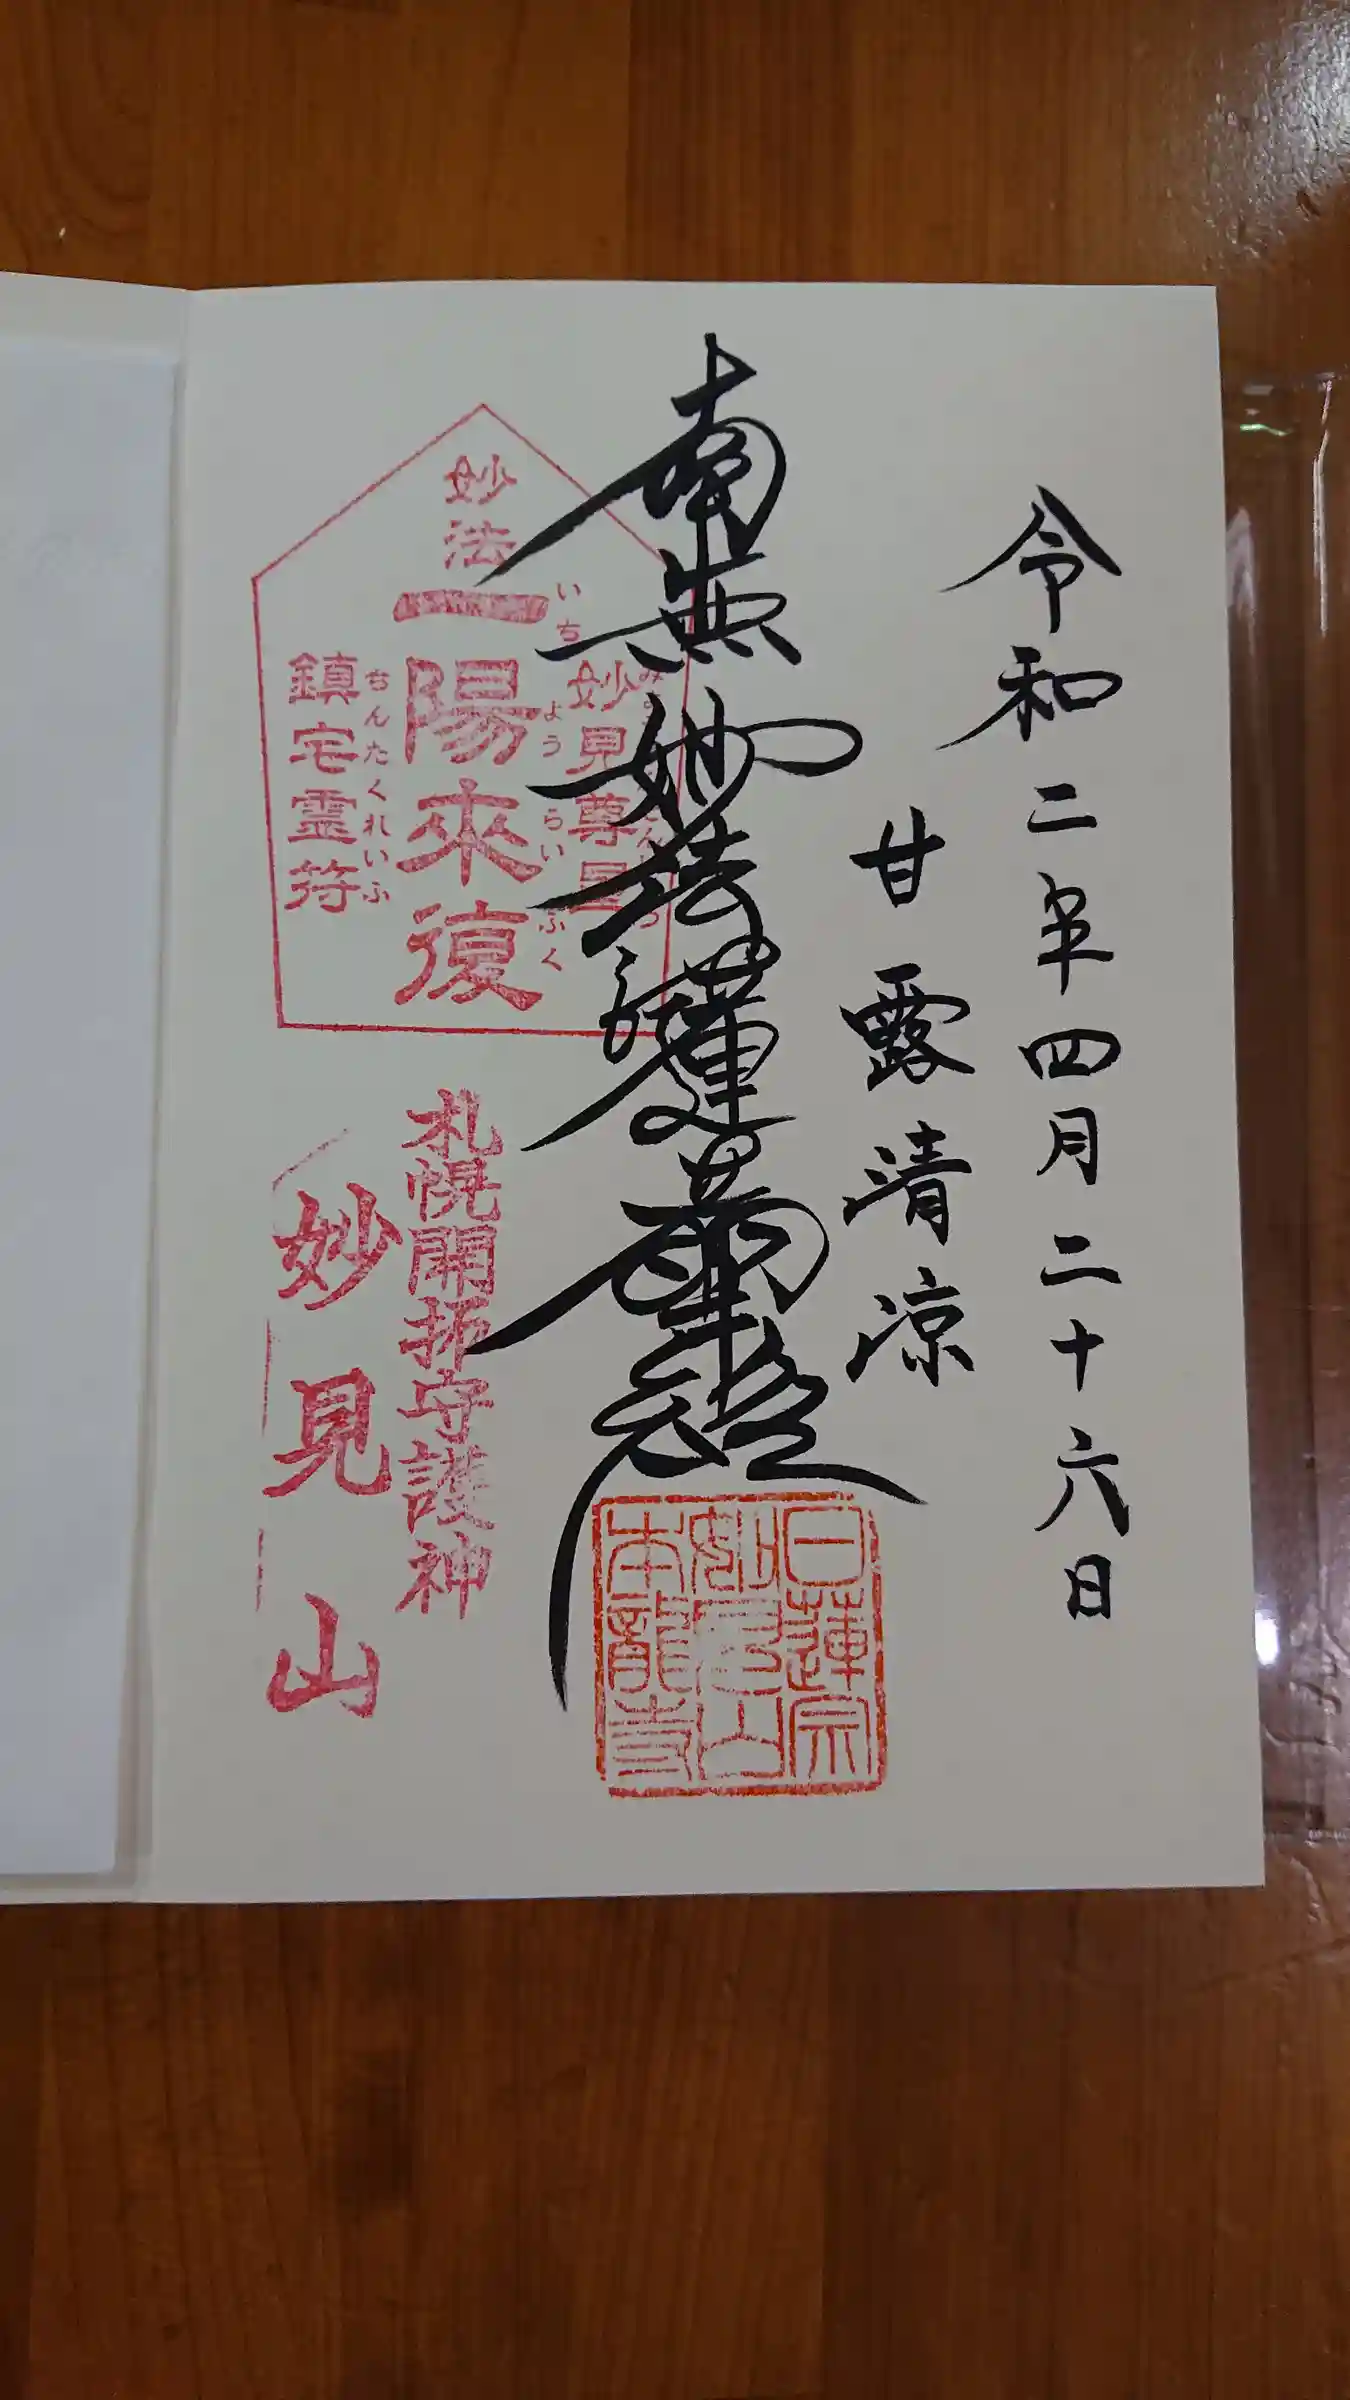 令和二年四月二十六日
甘露清涼
南無妙法蓮華経
日蓮宗
妙見山
本龍寺
妙法
一陽来復
いちようらいふく
妙見尊星
鎮宅霊符
ちんたくれいふ
札幌開拓守護神
妙見山